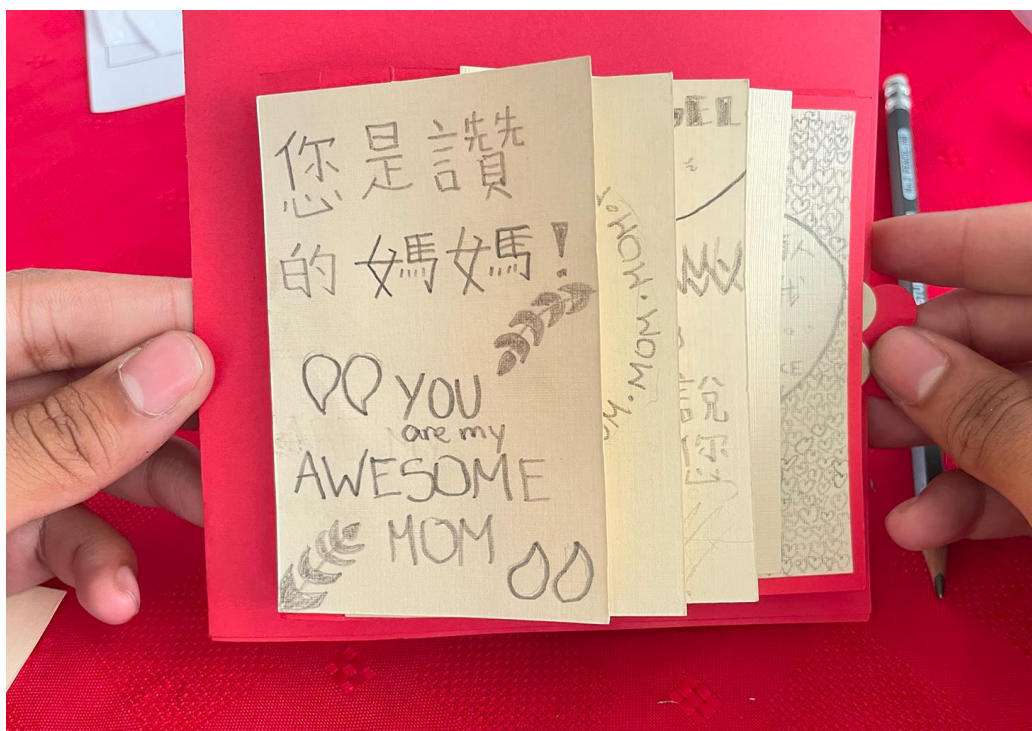 您是讚
的媽媽!
YOU
are my
AWESOME
MOM
MOM. MOM.
說
你